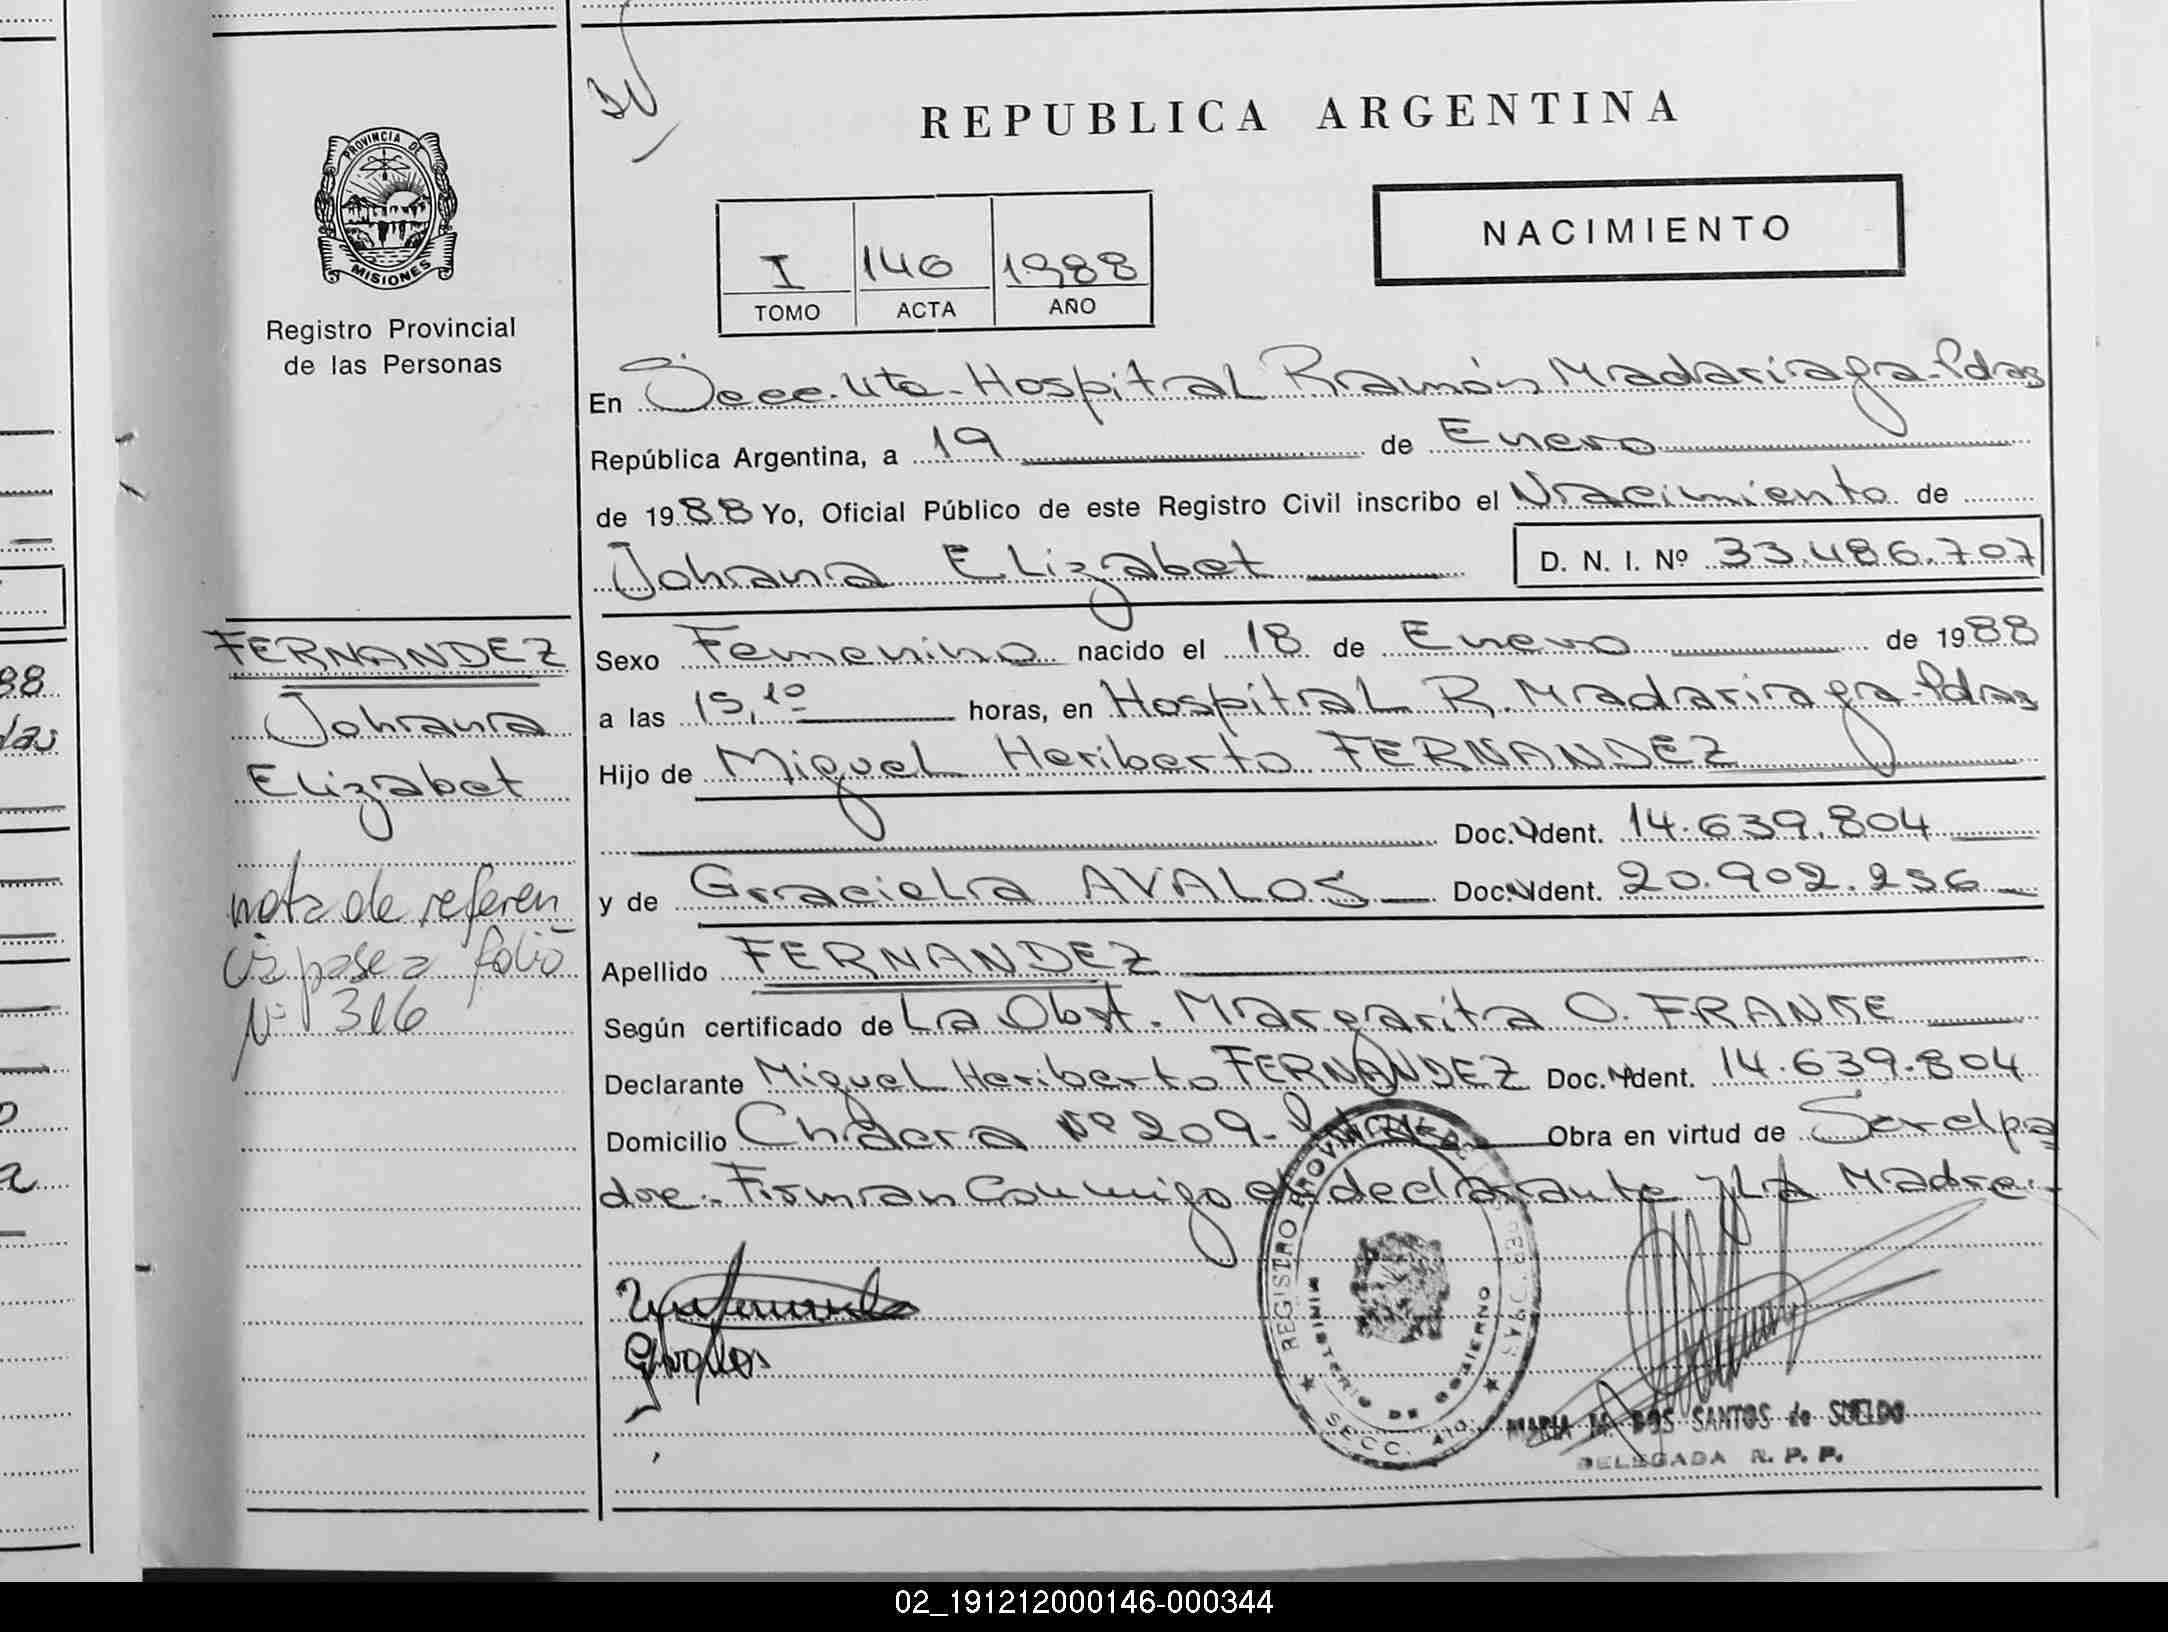 REPUBLICA ARGENTINA
NACIMIENTO
PROVINCIA DE
MISIONES
Registro Provincial
de las Personas
I 146 1988
TOMO ACTA AÑO
En Secc. Uta - Hospital Ramón Madariaga - Pdas
República Argentina, a 19 de Enero
de 1988 Yo, Oficial Público de este Registro Civil inscribo el Nacimiento de
Johana Elizabet D. N. I. Nº 33.486.707
Sexo Femenino nacido el 18 de Enero de 1988
a las 15,10 horas, en Hospital R. Madariaga - Pdas
Hijo de Miguel Heriberto FERNANDEZ
Doc. Ident. 14.639.804
y de Graciela AVALOS Doc. Ident. 20.902.256
Apellido FERNANDEZ
Según certificado de La Obst. Margarita O. FRANKE
Declarante Miguel Heriberto FERNANDEZ Doc. Ident. 14.639.804
Domicilio Chacra Nº 209 - Obra en virtud de Ser el pa
dre.- Firman Conmigo el declarante y La Madre.-
FERNANDEZ
Johana
Elizabet
nota de referen
cia pase a folio
Nº 316
REGISTRO PROVINCIAL DE LAS PERSONAS
MINISTERIO DE GOBIERNO
SECC.
MARIA M. DOS SANTOS de SUELDO
DELEGADA R. P. P.
02_191212000146-000344